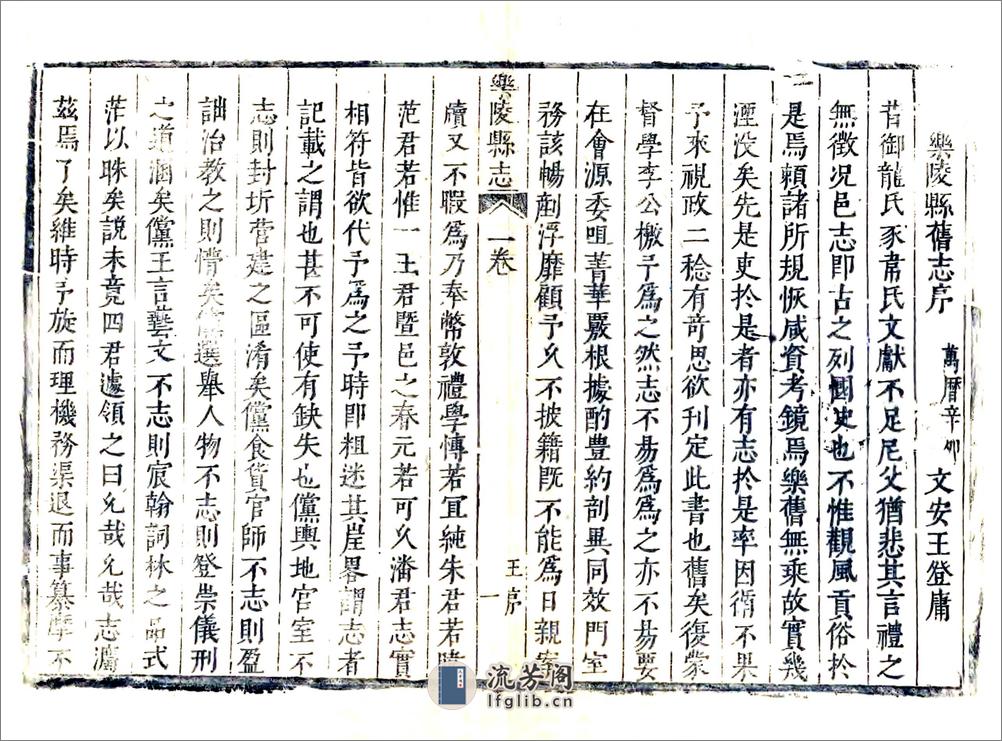 樂陵縣舊志序 萬曆辛卯 文安王登庸
昔御龍氏豕韋氏文獻不足尼父猶悲其言禮之
無徵况邑志即古之列國史也不惟觀風貢俗於
是焉賴諸所規恢咸資考鏡焉樂舊無乘故實幾
湮没矣先是吏於是者亦有志於是率因循不果
予來視政二稔有竒思欲刊定此書也舊矣復蒙
督學李公檄予爲之然志不易爲爲之亦不易要
在會源委咀菁華覈根據酌豊約剖異同效門室
務該暢剷浮靡顧予久不披籍旣不能爲日親案
樂陵縣志 一卷 王序 一
牘又不暇爲乃奉幣敦禮學傅若冝純朱君若
范君若惟一王君暨邑之春元若可久潘君志實
相符皆欲代予爲之予時即粗述其崖畧謂志者
記載之謂也甚不可使有缺失也儻輿地官室不
志則封圻營建之區淆矣儻食貨官師不志則盈
詘治教之則懵矣儻選舉人物不志則登崇儀刑
之道湎矣儻王言藝文不志則宸翰詞林之品式
茫以眛矣說未竟四君遽領之曰允哉允哉志
茲焉了矣維時予旋而理機務渠退而事纂摩不
流芳阁
lfglib.cn